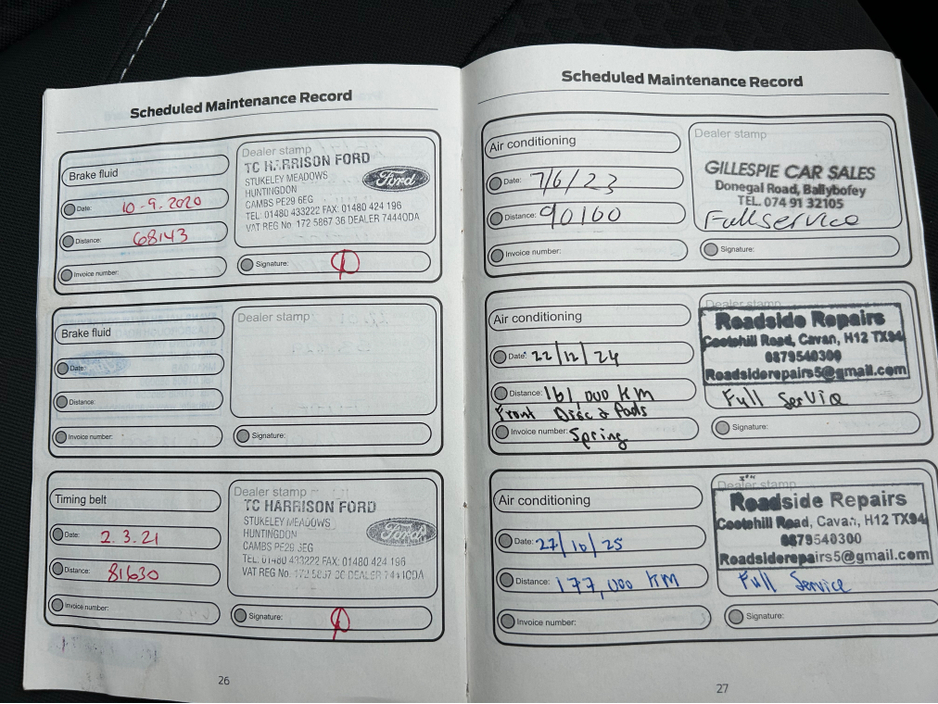 Scheduled Maintenance Record
Brake fluid
Date: 10-9.2020
Distance: 68143
Invoice number:
Dealer stamp
TC HARRISON FORD
STUKELEY MEADOWS
HUNTINGDON
CAMBS PE29 6EG
TEL: 01480 433222 FAX: 01480 424 196
VAT REG No 172 5867 36 DEALER 74440DA
Ford
Signature:
Brake fluid
Date:
Distance:
Invoice number:
Dealer stamp
Signature:
Timing belt
Date: 2.3.21
Distance: 81630
Invoice number:
Dealer stamp
TC HARRISON FORD
STUKELEY MEADOWS
HUNTINGDON
CAMBS PE29
TEL: 01480 433222 FAX: 01480 424 196
VAT REG No.
Ford
Signature:
26
Scheduled Maintenance Record
Air conditioning
Date: 7/6/23
Distance: 90100
Invoice number:
Dealer stamp
GILLESPIE CAR SALES
Donegal Road, Ballybofey
TEL. 074 91 32105
Full service
Signature:
Air conditioning
Date: 22/12/24
Distance: 161,000 KM
Front Disc & Pads
Invoice number: Spring
Dealer stamp
Roadside Repairs
Cootehill Road, Cavan, H12 TX94
0879540300
Roadsiderepairs5@gmail.com
Full Service
Signature:
Air conditioning
Date: 27/10/25
Distance: 177,000 KM
Invoice number:
Dealer stamp
Roadside Repairs
Cootehill Road, Cavan, H12 TX94
0879540300
Roadsiderepairs5@gmail.com
Full Service
Signature:
27